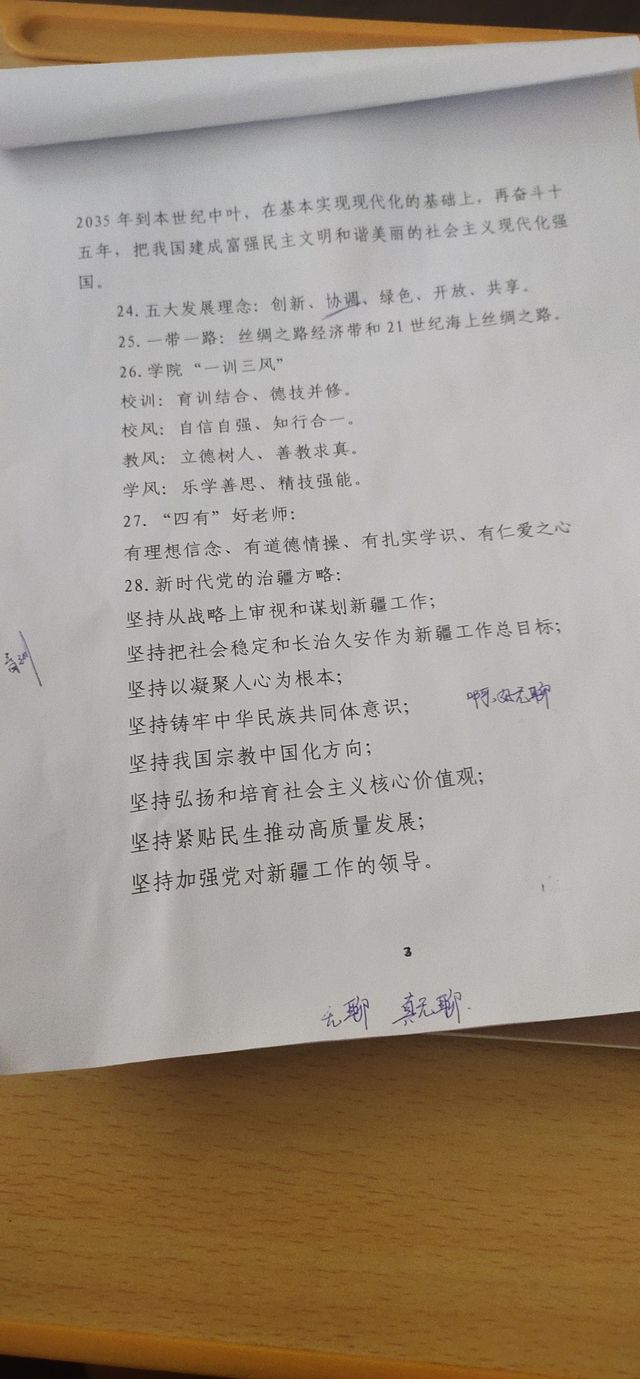 2035 年到本世纪中叶，在基本实现现代化的基础上，再奋斗十
五年，把我国建成富强民主文明和谐美丽的社会主义现代化强
国。
24. 五大发展理念：创新、协调、绿色、开放、共享。
25. 一带一路：丝绸之路经济带和 21 世纪海上丝绸之路。
26. 学院“一训三风”
校训：育训结合、德技并修。
校风：自信自强、知行合一。
教风：立德树人、善教求真。
学风：乐学善思、精技强能。
27. “四有”好老师：
有理想信念、有道德情操、有扎实学识、有仁爱之心
28. 新时代党的治疆方略：
坚持从战略上审视和谋划新疆工作；
坚持把社会稳定和长治久安作为新疆工作总目标；
坚持以凝聚人心为根本；
坚持铸牢中华民族共同体意识；
啊，好无聊
坚持我国宗教中国化方向；
坚持弘扬和培育社会主义核心价值观；
坚持紧贴民生推动高质量发展；
坚持加强党对新疆工作的领导。
3
无聊 真无聊.